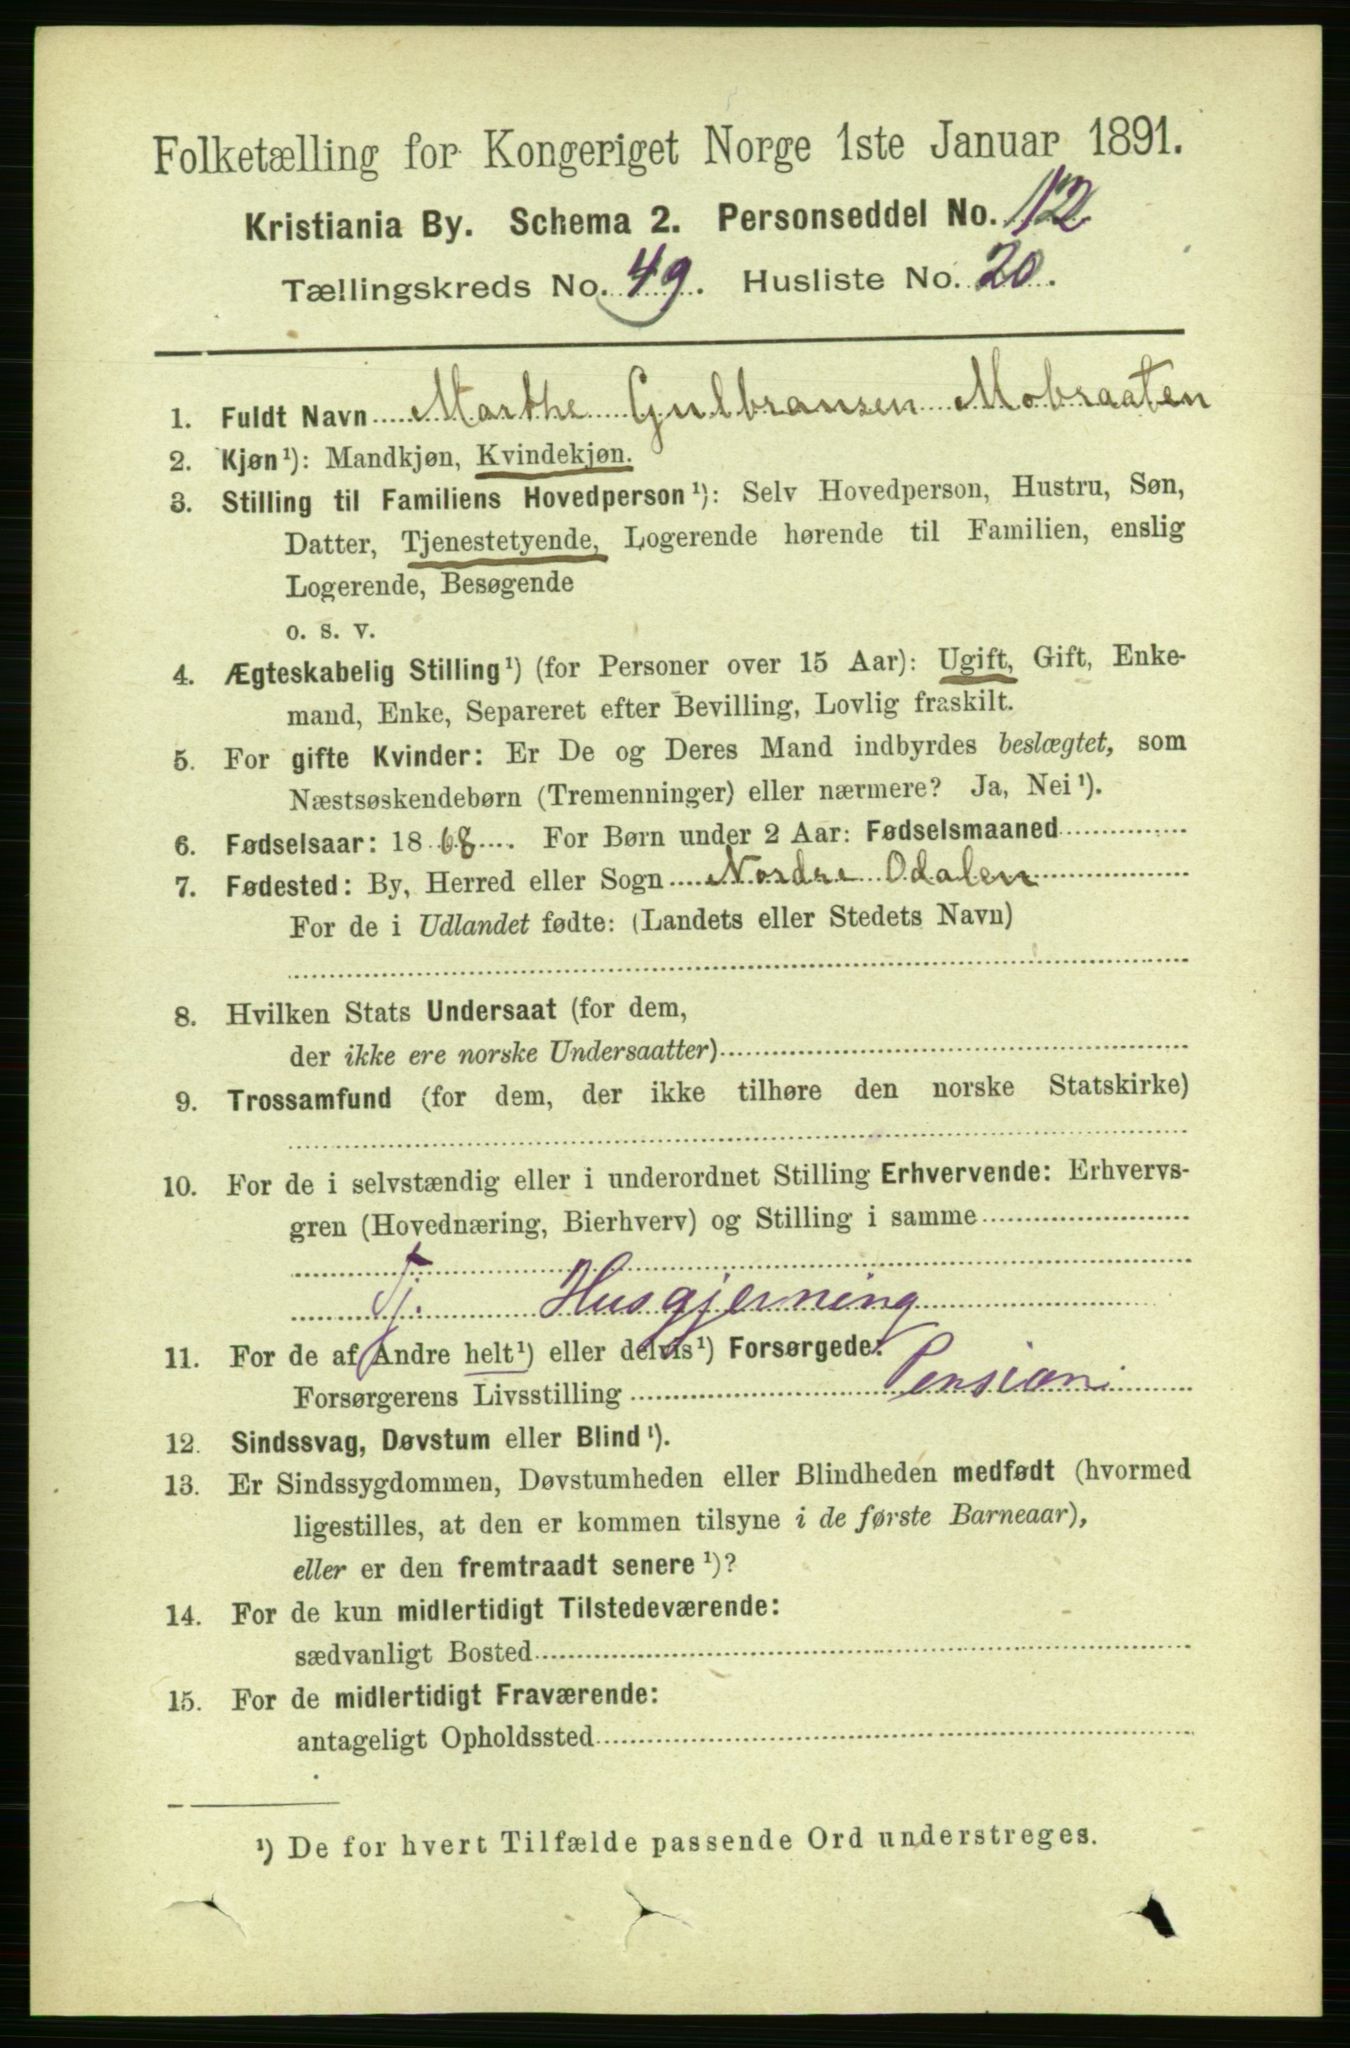 Folketælling for Kongeriget Norge 1ste Januar 1891.
Kristiania By. Schema 2. Personseddel No. 112
Tællingskreds No. 49. Husliste No. 20.
1. Fuldt Navn Marthe Gulbransen Mobraaten
2. Kjøn¹): Mandkjøn, Kvindekjøn.
3. Stilling til Familiens Hovedperson¹): Selv Hovedperson, Hustru, Søn,
Datter, Tjenestetyende, Logerende hørende til Familien, enslig
Logerende, Besøgende
o. s. v.
4. Ægteskabelig Stilling¹) (for Personer over 15 Aar): Ugift, Gift, Enke-
mand, Enke, Separeret efter Bevilling, Lovlig fraskilt.
5. For gifte Kvinder: Er De og Deres Mand indbyrdes beslægtet, som
Næstsøskendebørn (Tremenninger) eller nærmere? Ja, Nei¹).
6. Fødselsaar: 1868. For Børn under 2 Aar: Fødselsmaaned
7. Fødested: By, Herred eller Sogn Nordre Odalen
For de i Udlandet fødte: (Landets eller Stedets Navn)
8. Hvilken Stats Undersaat (for dem,
der ikke ere norske Undersaatter)
9. Trossamfund (for dem, der ikke tilhøre den norske Statskirke)
10. For de i selvstændig eller i underordnet Stilling Erhvervende: Erhvervs-
gren (Hovednæring, Bierhverv) og Stilling i samme
Tj. Husgjerning
11. For de af Andre helt¹) eller delvis¹) Forsørgede:
Forsørgerens Livsstilling Pension
12. Sindssvag, Døvstum eller Blind¹).
13. Er Sindssygdommen, Døvstumheden eller Blindheden medfødt (hvormed
ligestilles, at den er kommen tilsyne i de første Barneaar),
eller er den fremtraadt senere¹)?
14. For de kun midlertidigt Tilstedeværende:
sædvanligt Bosted
15. For de midlertidigt Fraværende:
antageligt Opholdssted
¹) De for hvert Tilfælde passende Ord understreges.